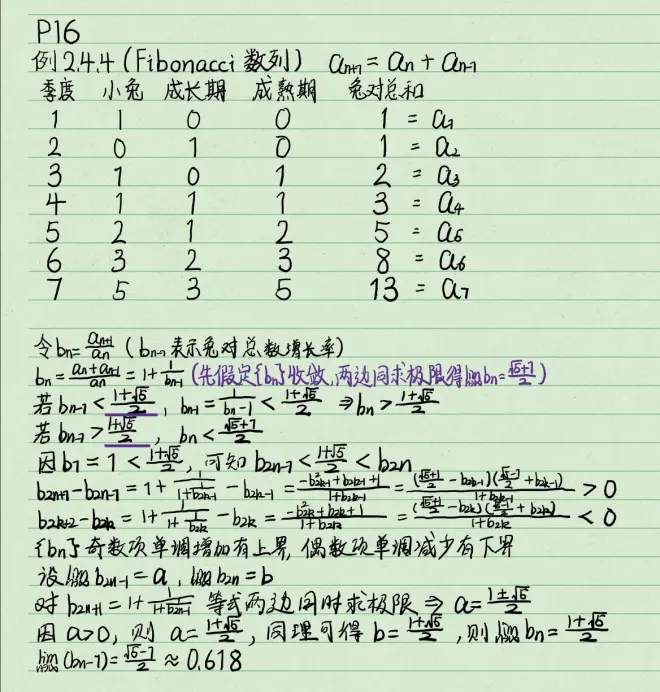 P16
例2.4.4 (Fibonacci 数列) aₙ₊₁ = aₙ + aₙ₋₁
季度 小兔 成长期 成熟期 兔对总和
1 1 0 0 1 = a₁
2 0 1 0 1 = a₂
3 1 0 1 2 = a₃
4 1 1 1 3 = a₄
5 2 1 2 5 = a₅
6 3 2 3 8 = a₆
7 5 3 5 13 = a₇
令 bₙ = aₙ₊₁/aₙ (bₙ₋₁ 表示兔对总数增长率)
bₙ = (aₙ+aₙ₋₁)/aₙ = 1 + 1/bₙ₋₁ (先假定{bₙ}收敛,两边同求极限得 lim bₙ = (√5+1)/2)
若 bₙ₋₁ < (1+√5)/2, bₙ₋₁ = 1/(bₙ-1) < (1+√5)/2 ⇒ bₙ > (1+√5)/2
若 bₙ₋₁ > (1+√5)/2, bₙ < (√5+1)/2
因 b₁ = 1 < (1+√5)/2, 可知 b₂ₙ₋₁ < (1+√5)/2 < b₂ₙ
b₂ₖ₊₁ - b₂ₖ₋₁ = 1 + 1/(1+1/b₂ₖ₋₁) - b₂ₖ₋₁ = (-b²₂ₖ₋₁+b₂ₖ₋₁+1)/(1+b₂ₖ₋₁) = ((√5+1)/2 - b₂ₖ₋₁)((√5-1)/2 + b₂ₖ₋₁)/(1+b₂ₖ₋₁) > 0
b₂ₖ₊₂ - b₂ₖ = 1 + 1/(1+1/b₂ₖ) - b₂ₖ = (-b²₂ₖ+b₂ₖ+1)/(1+b₂ₖ) = ((√5+1)/2 - b₂ₖ)((√5-1)/2 + b₂ₖ)/(1+b₂ₖ) < 0
{bₙ}奇数项单调增加有上界, 偶数项单调减少有下界
设 lim b₂ₙ₋₁ = a, lim b₂ₙ = b
对 b₂ₙ₊₁ = 1 + 1/(1+1/b₂ₙ₋₁) 等式两边同时求极限 ⇒ a = (1±√5)/2
因 a>0, 则 a = (1+√5)/2, 同理可得 b = (1+√5)/2, 则 lim bₙ = (1+√5)/2
lim (bₙ-1) = (√5-1)/2 ≈ 0.618